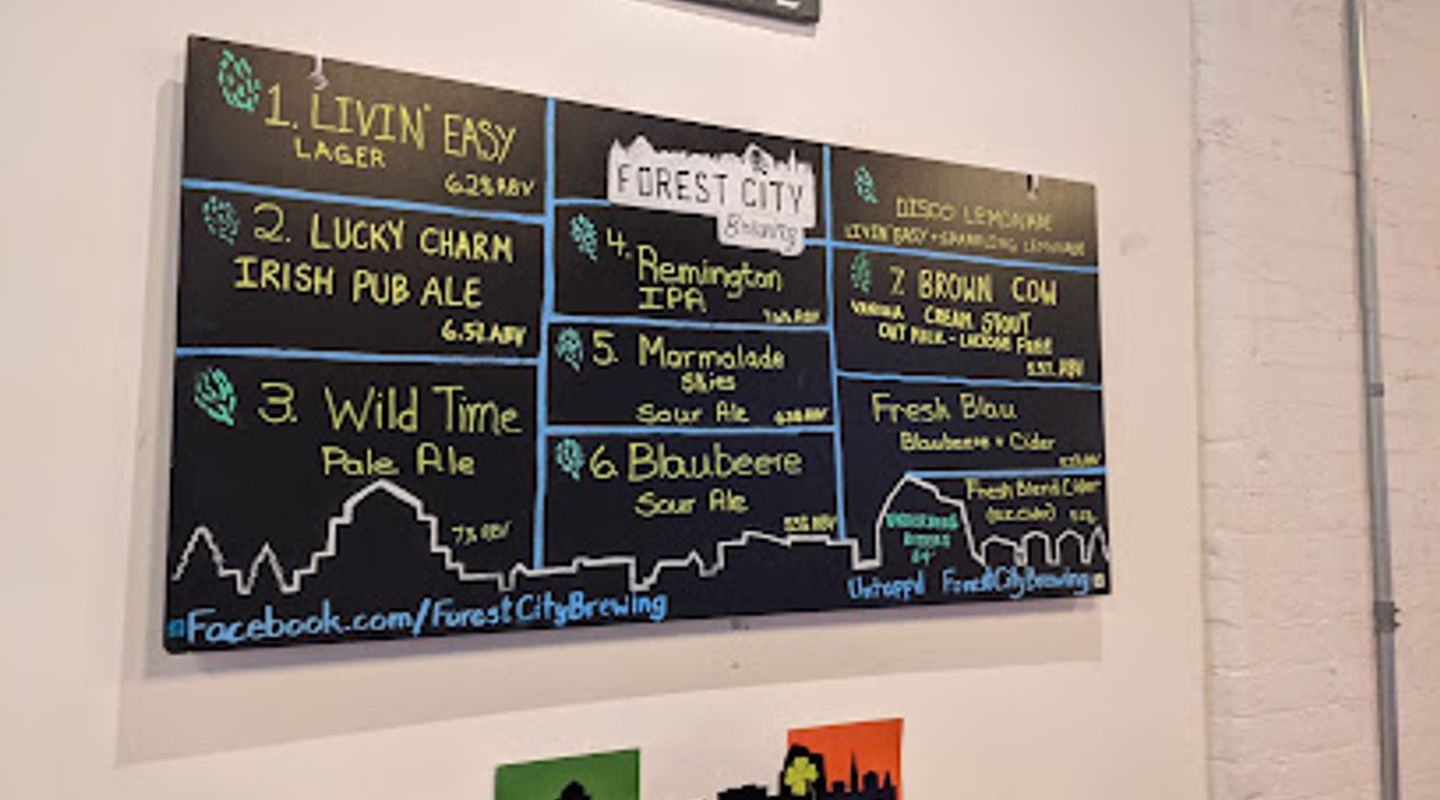 1. LIVIN' EASY
LAGER
6.2% ABV
2. LUCKY CHARM
IRISH PUB ALE
6.5% ABV
3. Wild Time
Pale Ale
7% ABV
FOREST CITY
Brewing
4. Remington
IPA
ABV
5. Marmalade
Skies
Sour Ale
6. Blaubeere
Sour Ale
DISCO LEMONADE
LIVIN' EASY + SPARKLING LEMONADE
7. BROWN COW
VANILLA CREAM STOUT
OAT MILK - LACTOSE FREE
ABV
Fresh Blau
Blaubeere + Cider
Fresh Blend Cider
Facebook.com/ForestCityBrewing
Untappd ForestCityBrewing